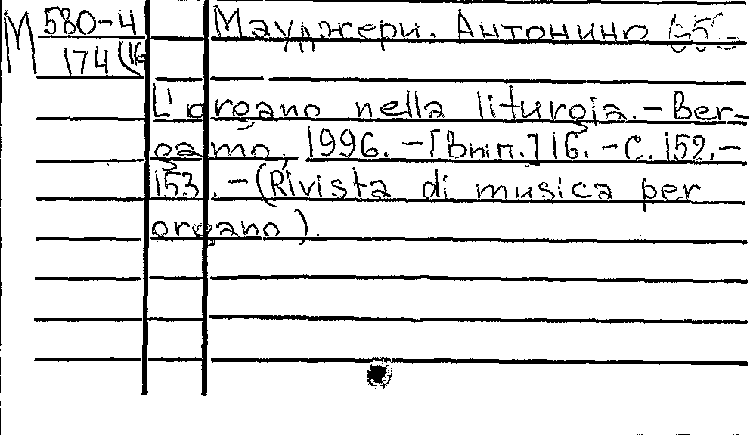 М 580-4 Мауджери. Антонино
174(16
L'organo nella liturgia.-Ber-
gamo, 1996.-[Вып.]16.-С.152.-
153.-(Rivista di musica per
organo).